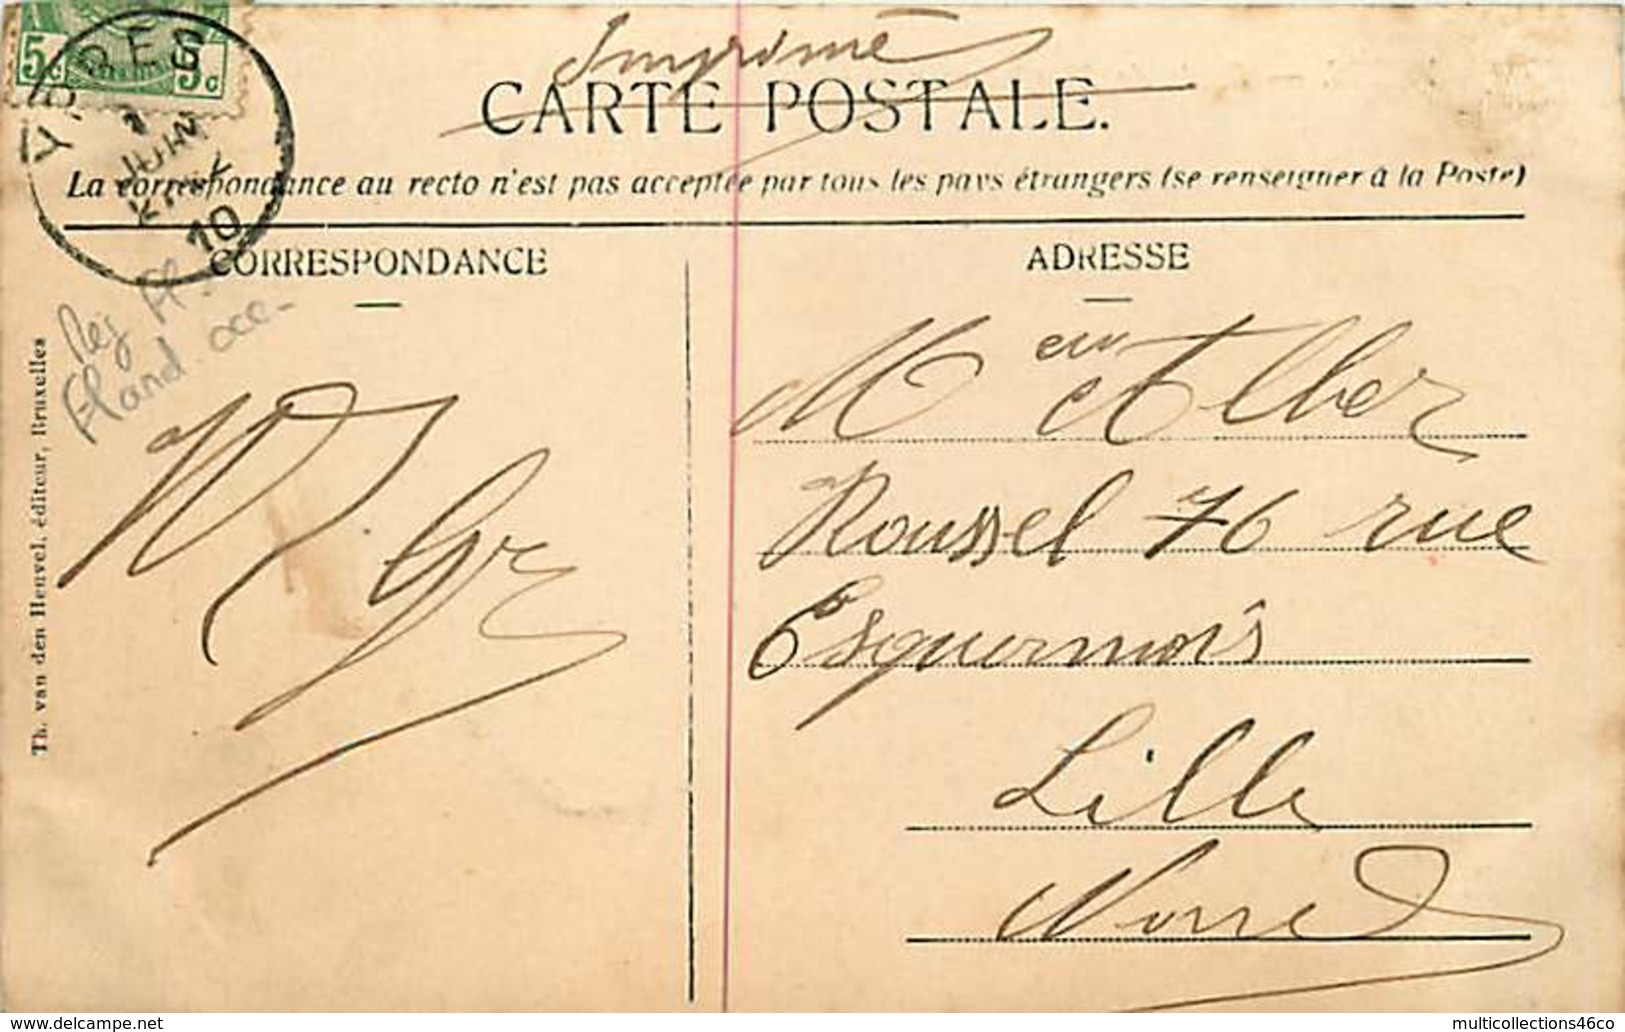 5c 5c
YPRES
1
JUIN
10
Imprimé
CARTE POSTALE.
La correspondance au recto n'est pas acceptée par tous les pays étrangers (se renseigner à la Poste)
CORRESPONDANCE
ADRESSE
Fland. occ-
Th. van den Heuvel, éditeur, Bruxelles
Meur Alber
Roussel 76 rue
Esquermois
Lille
Nord
www.delcampe.net
multicollections46co